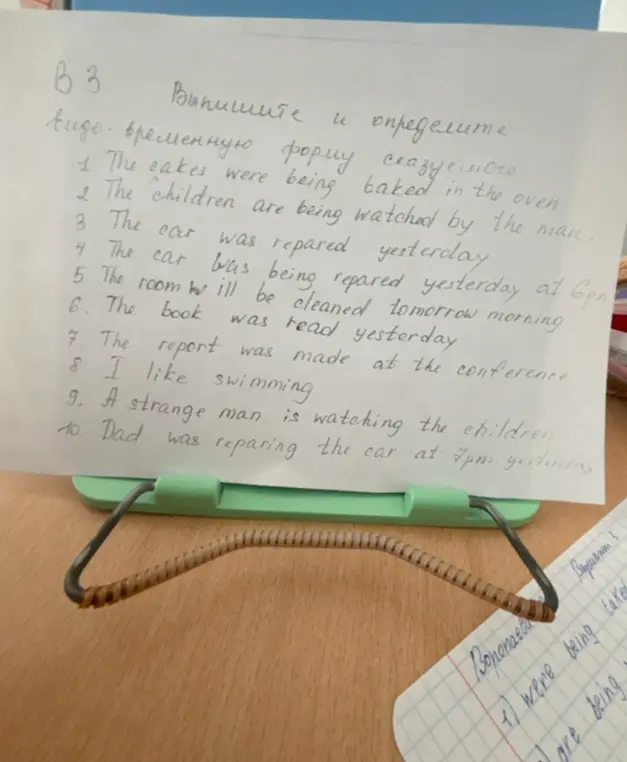 В 3 Выпишите и определите
видо-временную форму сказуемого
1 The cakes were being baked in the oven
2 The children are being watched by the man.
3 The car was repared yesterday
4 The car was being repared yesterday at 6pm
5 The room will be cleaned tomorrow morning
6. The book was read yesterday
7. The report was made at the conference
8. I like swimming
9. A strange man is watching the children
10. Dad was reparing the car at 7pm yesterday
Вариант 3
1) were being
are being